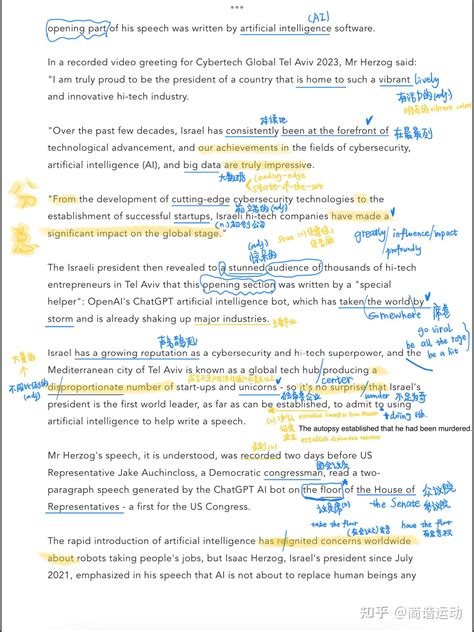 (AI)
opening part of his speech was written by artificial intelligence software.
In a recorded video greeting for Cybertech Global Tel Aviv 2023, Mr Herzog said:
"I am truly proud to be the president of a country that is home to such a vibrant lively
and innovative hi-tech industry.
有活力的(adj)
明亮的 vibrant color
持续地
"Over the past few decades, Israel has consistently been at the forefront of 在最前列
technological advancement, and our achievements in the fields of cybersecurity,
artificial intelligence (AI), and big data are truly impressive.
大数据
leading-edge
state-of-the-art
"From the development of cutting-edge cybersecurity technologies to the
前沿的(adj)
establishment of successful startups, Israeli hi-tech companies have made a
(n.)初创公司
significant impact on the global stage."
greatly influence/impact
profoundly
(adj)
The Israeli president then revealed to a stunned audience of thousands of hi-tech
entrepreneurs in Tel Aviv that this opening section was written by a "special
helper": OpenAI's ChatGPT artificial intelligence bot, which has taken the world by
storm and is already shaking up major industries.
somewhere 席卷
go viral
be all the rage
be a hit
声名鹊起
Israel has a growing reputation as a cybersecurity and hi-tech superpower, and the
大量的
Mediterranean city of Tel Aviv is known as a global tech hub, producing a
center
(adj)
disproportionate number of start-ups and unicorns - so it's no surprise that Israel's
独角兽企业
wonder 不足为奇
president is the first world leader, as far as can be established, to admit to using
doing sth.
artificial intelligence to help write a speech.
The autopsy established that he had been murdered.
Mr Herzog's speech, it is understood, was recorded two days before US
国会议员
Representative Jake Auchincloss, a Democratic congressman, read a two-
paragraph speech generated by the ChatGPT AI bot on the floor of the House of 众议院
Representatives - a first for the US Congress.
the Senate 参议院
take the floor
have the floor
The rapid introduction of artificial intelligence has reignited concerns worldwide
about robots taking people's jobs, but Isaac Herzog, Israel's president since July
2021, emphasized in his speech that AI is not about to replace human beings any
知乎 @简谐运动